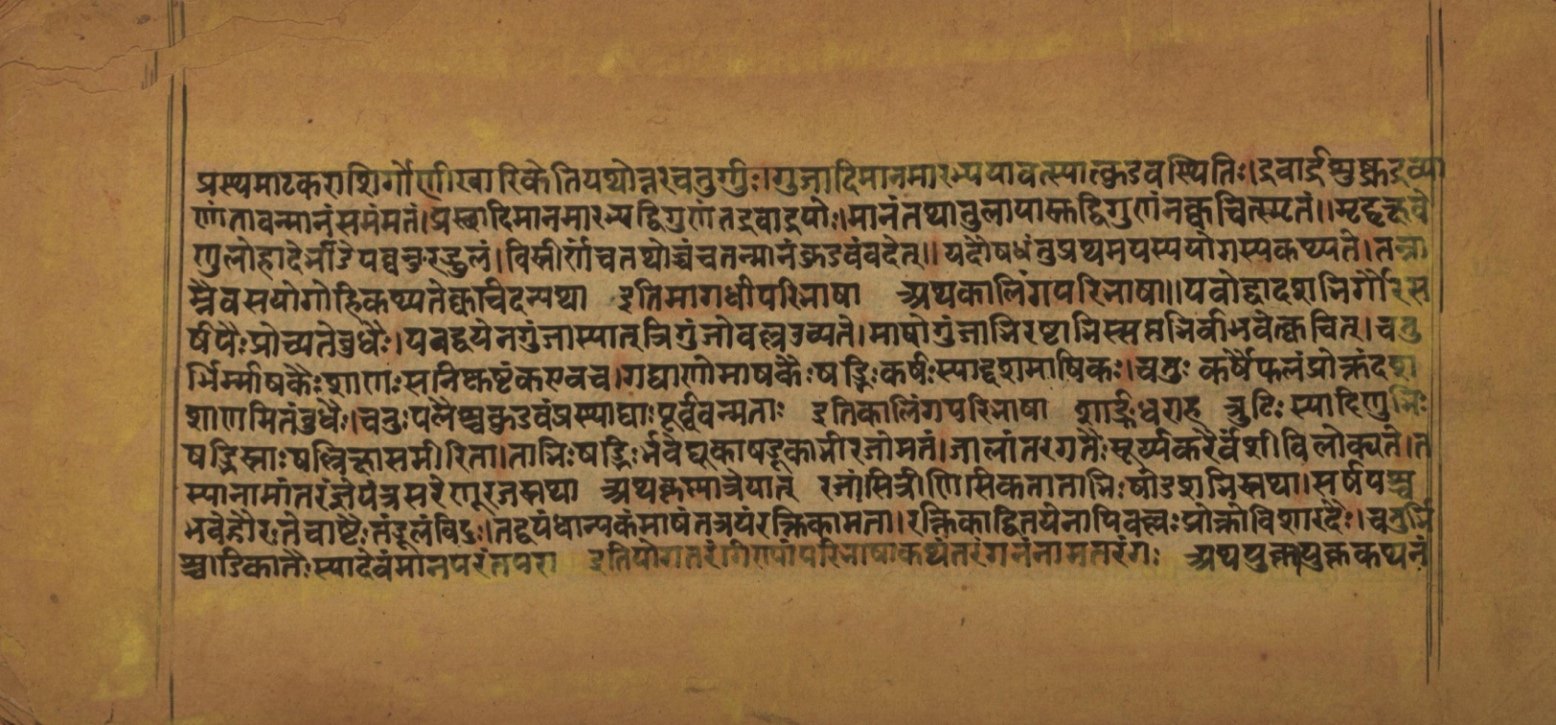 प्रस्थमाटकराशिर्गौणीखारिकेतियथोत्तरचतुर्गुणाः।गुंजादिमानमारभ्ययावत्स्यात्कुडवस्थितिः।द्रवार्द्रशुष्कद्रव्या
णांतावन्मानंसमंमतं।प्रस्थादिमानमारभ्यद्विगुणंतद्रवार्द्रयोः।मानंतथातुलायास्तुद्विगुणंनक्वचित्स्मृतं।।मृद्वृक्षवे
णुलोहादेर्भांडंयच्चतुरङ्गुलं।विस्तीर्णंचतथोच्चंचतन्मानंकुडवंवदेत्।।यदौषधंतुप्रथमंयस्ययोगस्यकथ्यते।तन्ना
म्नैवसयोगोहिकथ्यतेक्वचिदन्यथा इतिमागधीपरिभाषा अथकालिंगपरिभाषा।।यवोद्वादशभिर्गौरस
र्षपैःप्रोच्यतेबुधैः।यवद्वयेनगुंजास्यात्त्रिगुंजोवल्लउच्यते।माषोगुंजाभिरष्टाभिस्सप्तभिर्वाभवेत्क्वचित्।चतु
र्भिर्म्माषकैःशाणःसनिष्कष्टंकएवच।गद्याणोमाषकैःषड्भिःकर्षःस्याद्दशमाषिकः।चतुः कर्षैपलंप्रोक्तंदश
शाणमितंबुधैः।चतुःपलैश्चकुडवंप्रस्थाद्याःपूर्व्ववन्मताः इतिकालिंगपरिभाषा शार्ङ्गधराह त्रुटिः स्यादणुभिः
षड्भिस्ताःषल्लिक्षासमीरिता।ताभिःषड्भिःर्भवेद्यूकाषड्यूकाभीरजोमतं।जालांतरगतैःसूर्य्यकरैर्वंशीविलोक्यते।त
स्यानामांतरंज्ञेयंत्रसरेणूरजस्तथा अथकृष्णात्रेयात् रजांसित्रीणिसिकताताभिःषोडशभिस्तथा।सर्षपश्च
भवेद्गौरःतैवाष्टैःतंडूलंविदुः।तद्वयंधान्यकंमाषंतत्रयंरक्तिकामता।रक्तिकाद्वितयेनापिवल्लःप्रोक्तोविशारदैः।चतुर्भि
श्चांडिकातैःस्यादेवंमानपरंतपरा इतियोगतरंगिण्यांपरिभाषाकथंतरंगनंनामतरंगः अथयुक्तायुक्तकथनं